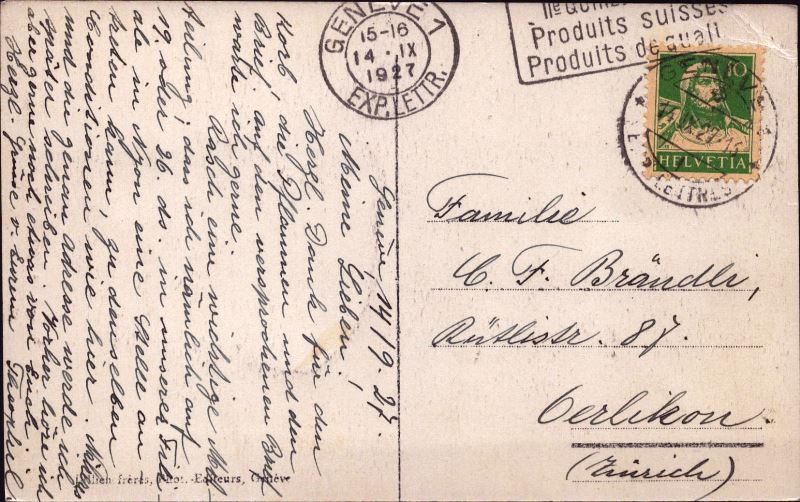 Genève 14/9.27.
Meine Lieben!
Herzl. Dank für den
Korb, die Pflaumen und den
Brief, auf den versprochenen Brief
warte ich gerne.
Rasch eine wichtige Mit-
teilung, dass ich nämlich auf
19. oder 26. ds. in unserer Fili-
ale in Nyon eine Stelle an
treten kann, zu denselben
Conditionen wie hier. Näheres
und die genaue Adresse werde ich
später schreiben. Vorher höre ich
aber gerne noch etwas von Euch.
Herzl. Grüsse v. Eurem
GENÈVE 1
15-16
14. IX
1927
EXP. LETTR.
Produits suisses
Produits de quali
10
HELVETIA
Familie
C. F. Brändli,
Rütlistr. 87.
Oerlikon.
(Zürich)
frères, Phot.-Editeurs, Genève